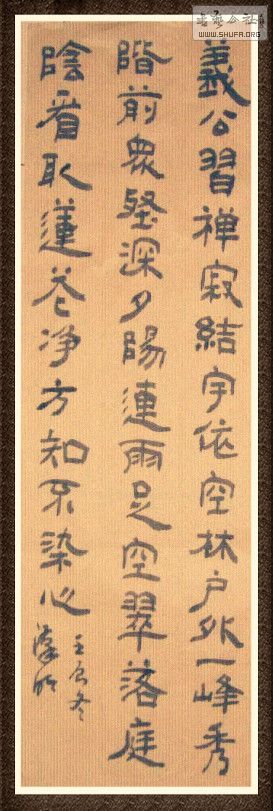 義公習禪寂結宇依空林户外一峰秀
階前眾壑深夕陽連雨足空翠落庭
陰看取蓮花净方知不染心
壬辰冬
WWW.SHUFA.ORG